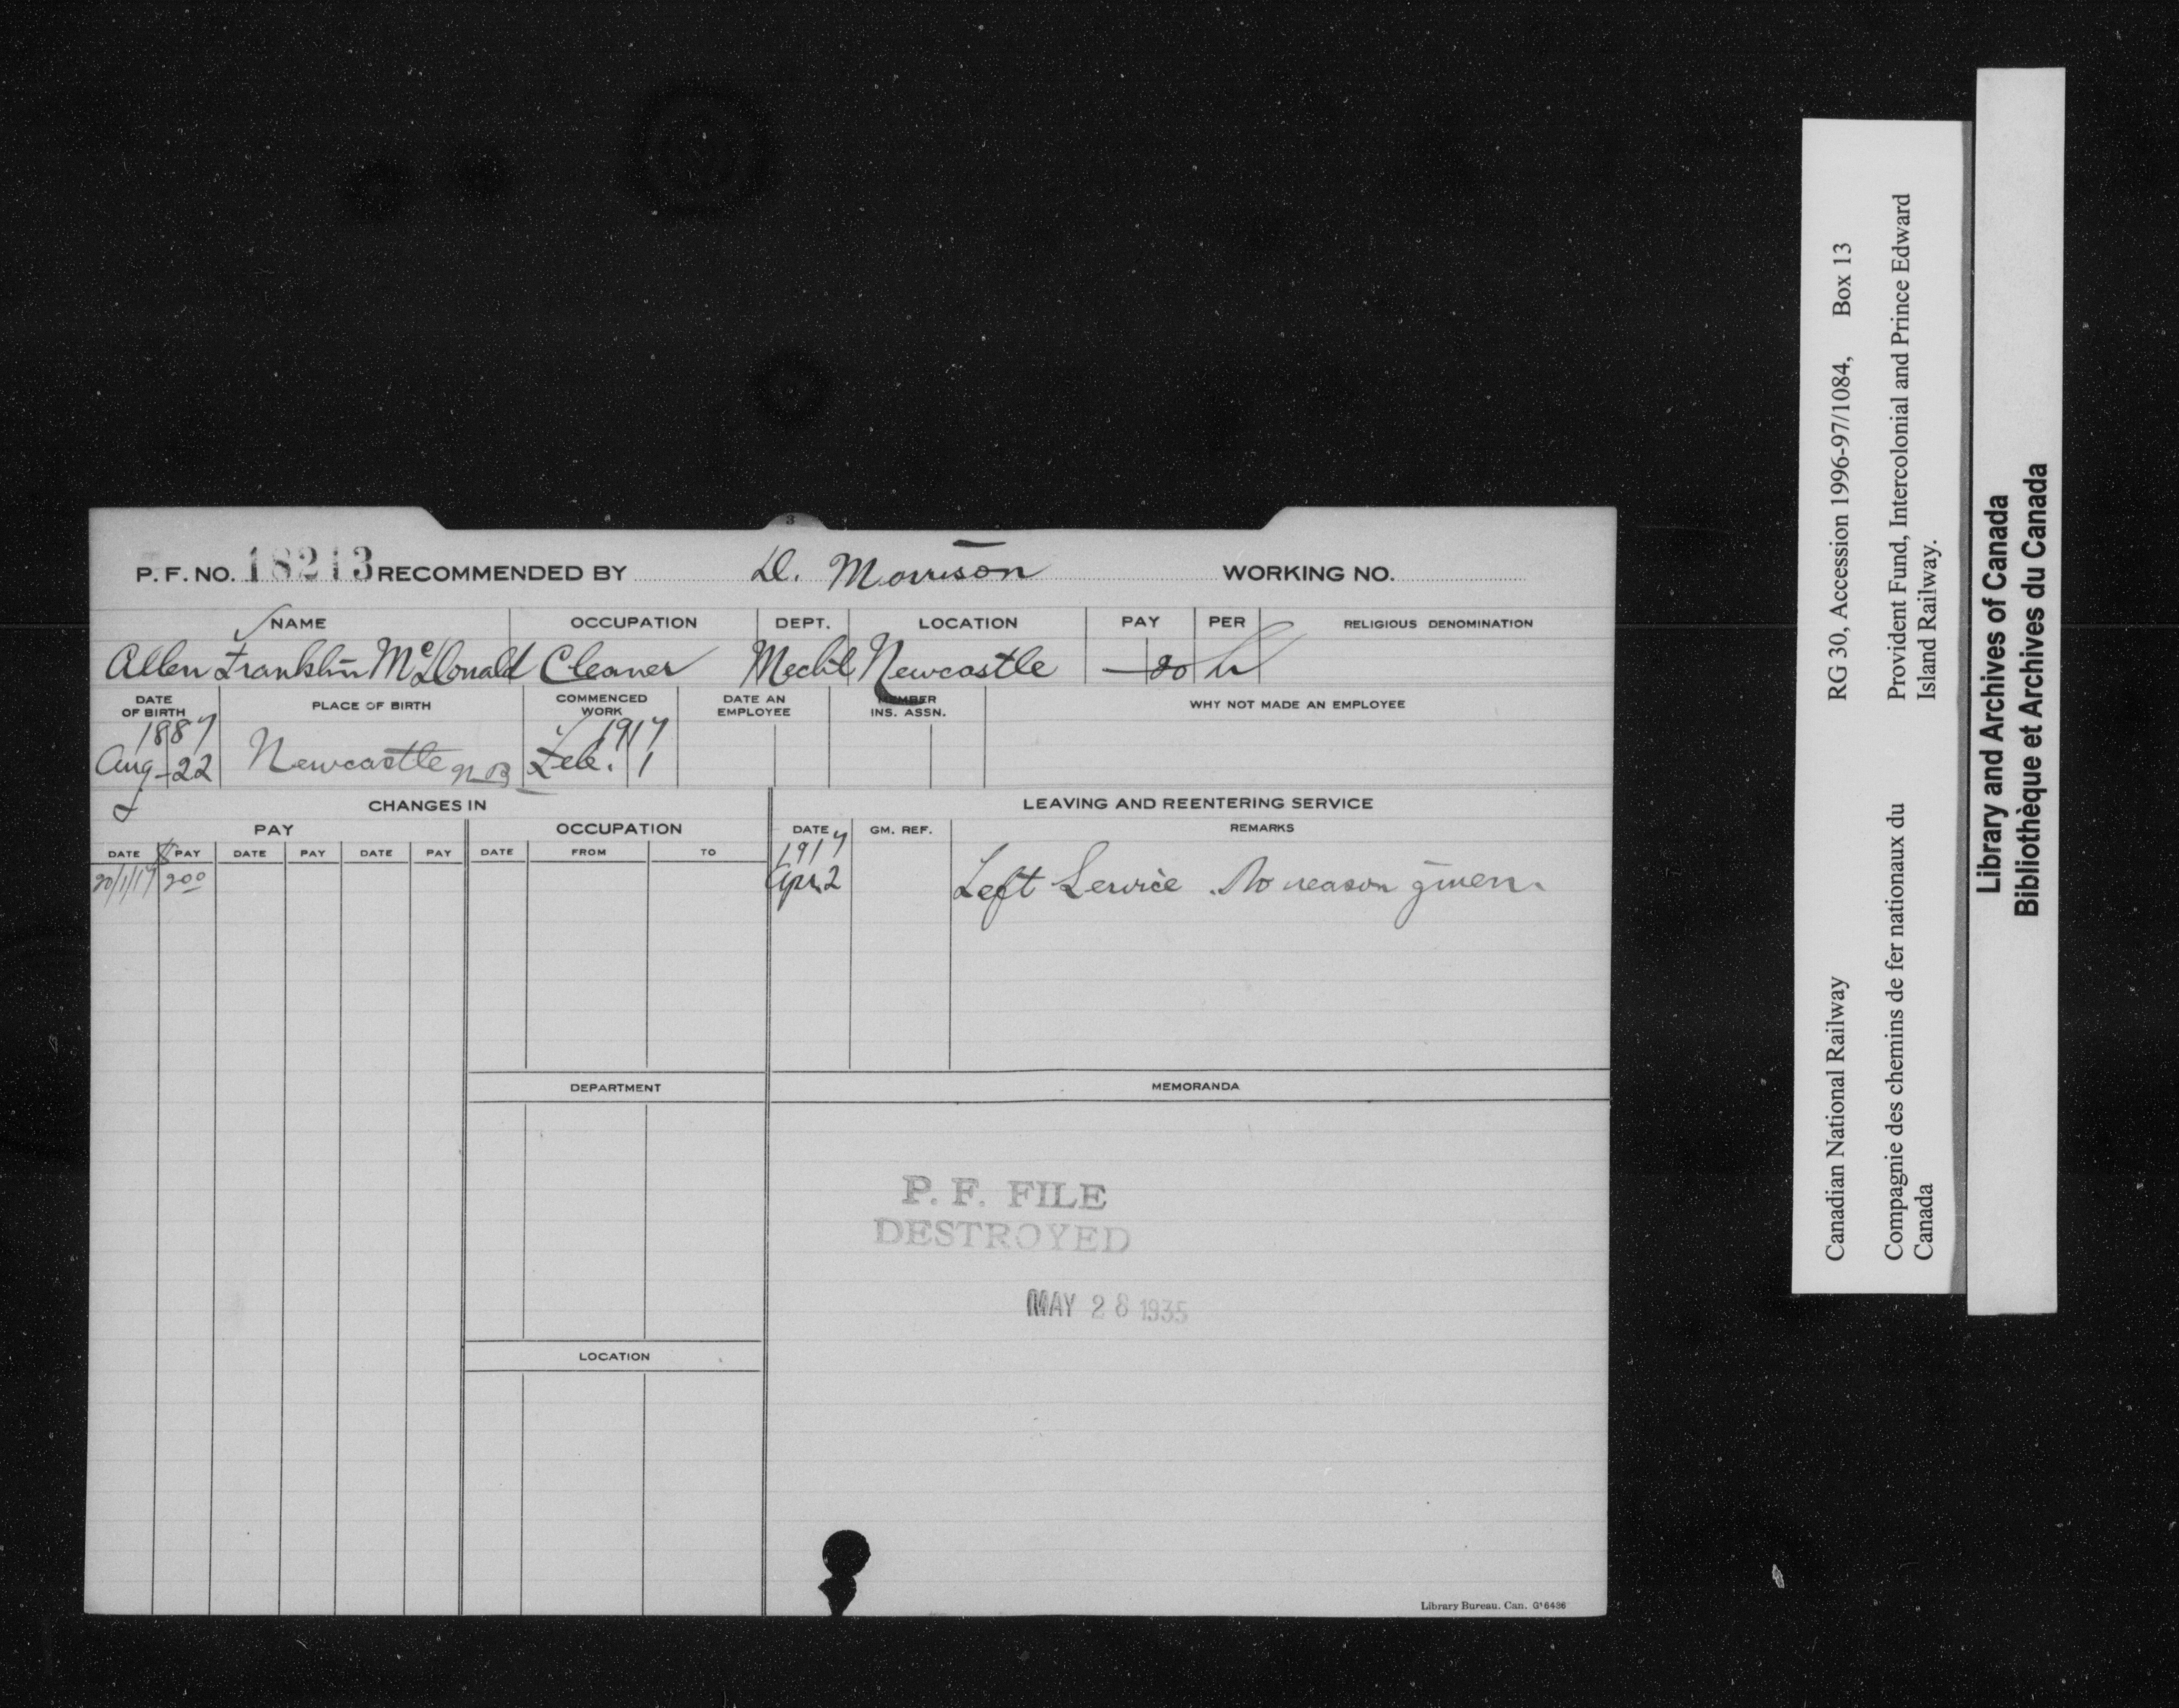 3
P. F. NO. 18213 RECOMMENDED BY D. Morrison WORKING NO.
NAME OCCUPATION DEPT. LOCATION PAY PER RELIGIOUS DENOMINATION
Allen Franklin McDonald Cleaner Mechl Newcastle — 20 h
DATE OF BIRTH PLACE OF BIRTH COMMENCED WORK DATE AN EMPLOYEE MEMBER INS. ASSN. WHY NOT MADE AN EMPLOYEE
1887 1917
Aug-22 Newcastle N B Feb. 1
CHANGES IN LEAVING AND REENTERING SERVICE
PAY OCCUPATION DATE GM. REF. REMARKS
DATE $ PAY DATE PAY DATE PAY DATE FROM TO 1917
20/1/17 200 Apr. 2 Left Service. No reason given.
DEPARTMENT MEMORANDA
P. F. FILE
DESTROYED
MAY 28 1935
LOCATION
Library Bureau. Can. G16436
Canadian National Railway RG 30, Accession 1996-97/1084, Box 13
Compagnie des chemins de fer nationaux du Provident Fund, Intercolonial and Prince Edward
Canada Island Railway.
Library and Archives of Canada
Bibliothèque et Archives du Canada